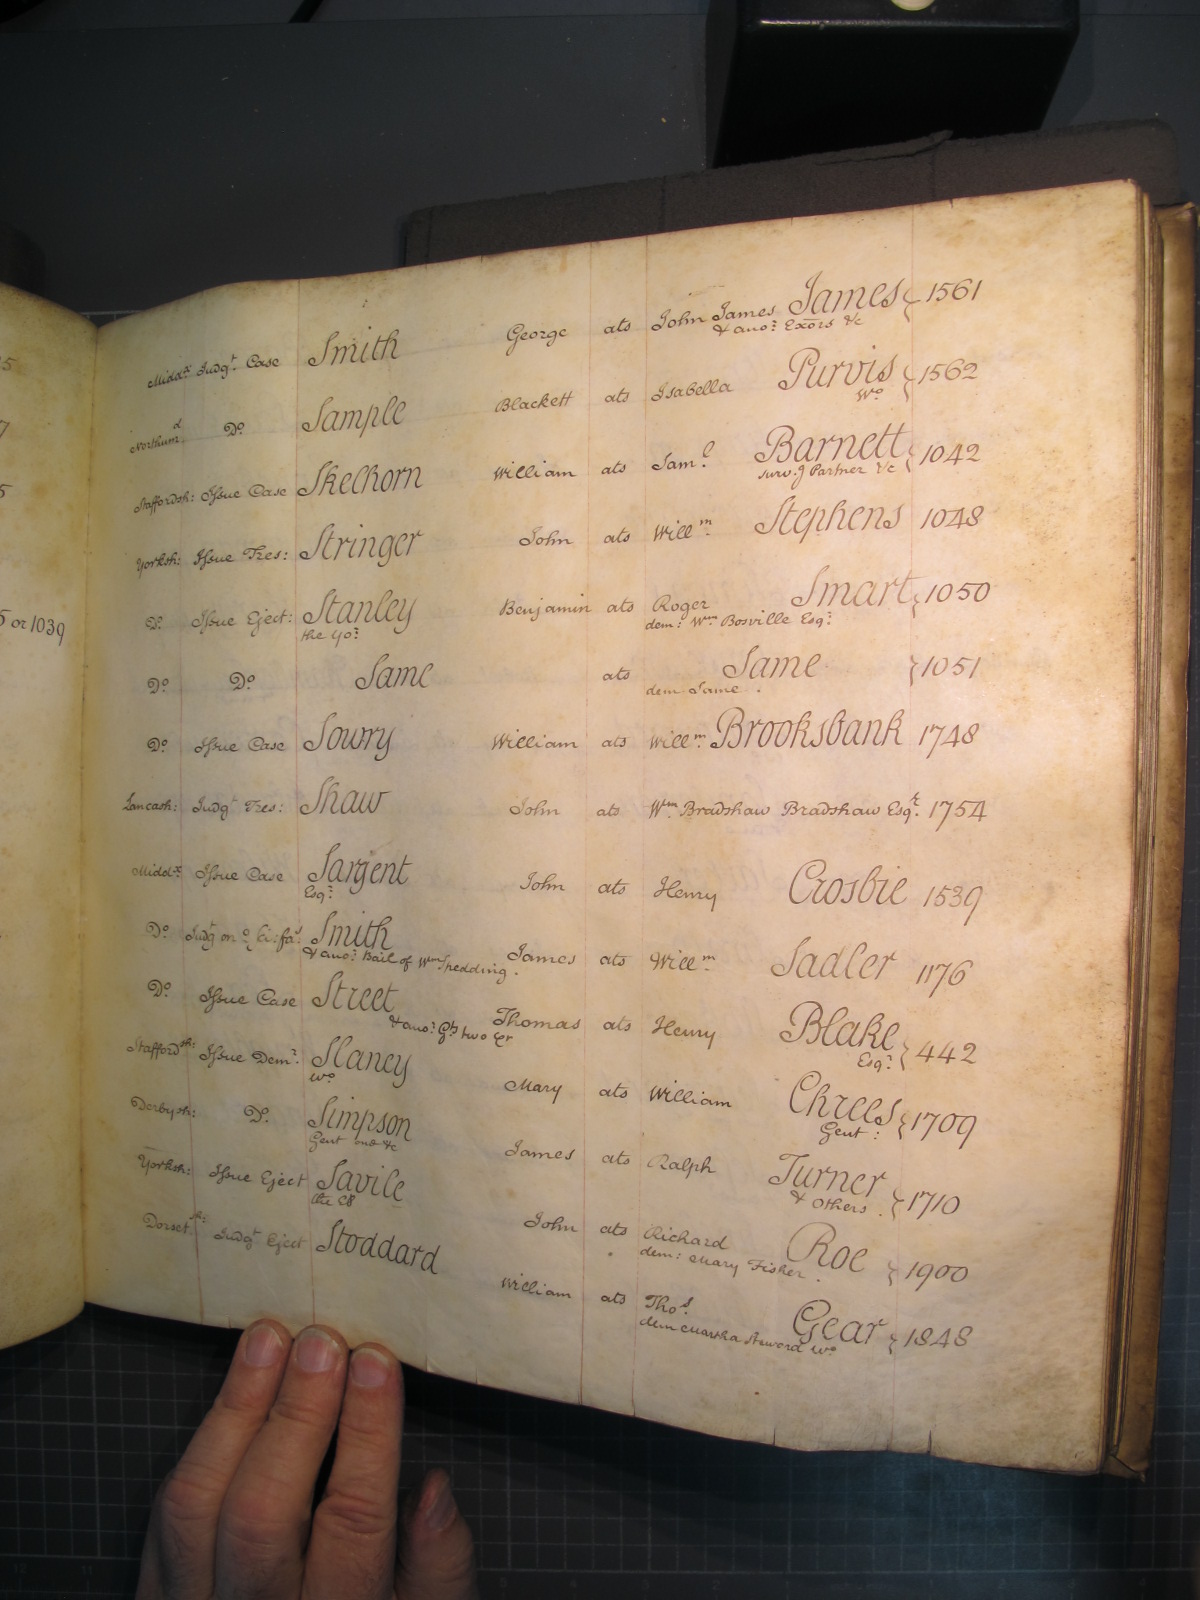 5
7
5
5 or 1039
Middx Judgt Case Smith George ats John James James 1561
& anor Exors &c
Northumd Do Sample Blackett ats Isabella Purvis 1562
Wo
Staffordsh: Issue Case Skelhorn William ats Saml Barnett 1042
surv.g Partner &c
Yorksh: Issue Tres: Stringer John ats Willm Stephens 1048
Do Issue Eject: Stanley Benjamin ats Roger Smart 1050
the yor dem: Wm Bosville Esqr
Do Do Same ats Same 1051
dem Same
Do Issue Case Sowry William ats Willm Brooksbank 1748
Lancash: Judgt Tres: Shaw John ats Wm Bradshaw Bradshaw Esqr 1754
Middx Issue Case Sargent John ats Henry Crosbie 1539
Esqr
Do Judgt on Sci: fas Smith James ats Willm Sadler 1176
& anor Bail of Wm Shedding
Do Issue Case Street Thomas ats Henry Blake 442
& anor Gts two &c Esqr
Staffordsh: Issue Demr Slaney Mary ats William Chrees 1709
Wo Gent:
Derbysh: Do Simpson James ats Ralph Turner 1710
Gent one &c & others
Yorksh: Issue Eject Savile John ats Richard Roe 1900
the dem: Mary Fisher
Dorsetsh: Judgt Eject Stoddard William ats Thos Gear 1848
dem Martha Steward Wo